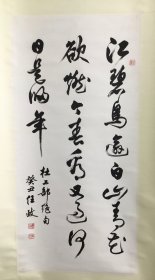 江碧鳥逾白山青花
欲燃今春看又過何
日是歸年
杜工部絕句
癸丑任政